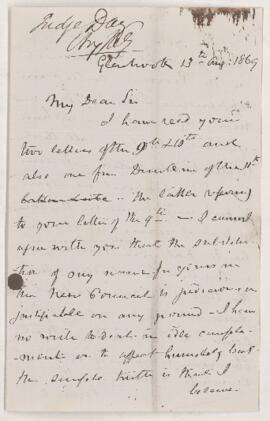 Judge Day
Glenbrook 13th Aug. 1869
My Dear Sir
I have read your
two letters of the 9th & 10th and
also one from of the 11th
the latter referring
to your letter of the 9th — I cannot
agree with you that the substitu
tion of my name for yours in
the New Council is judicious or
justifiable on any ground — I have
no wish to deal in idle compli
ments or to affect humility but
the simple truth is that I